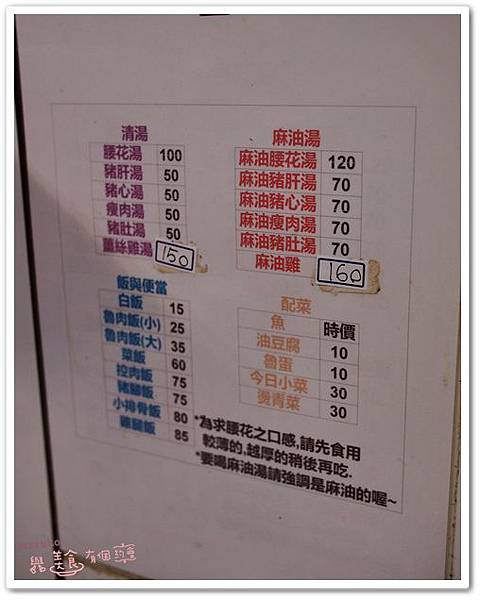 清湯
腰花湯 100
豬肝湯 50
豬心湯 50
瘦肉湯 50
豬肚湯 50
薑絲雞湯 150
麻油湯
麻油腰花湯 120
麻油豬肝湯 70
麻油豬心湯 70
麻油瘦肉湯 70
麻油豬肚湯 70
麻油雞 160
飯與便當
白飯 15
魯肉飯(小) 25
魯肉飯(大) 35
菜飯 60
控肉飯 75
豬腳飯 75
小排骨飯 80
雞腿飯 85
配菜
魚 時價
油豆腐 10
魯蛋 10
今日小菜 30
燙青菜 30
*為求腰花之口感,請先食用
較薄的,越厚的稍後再吃.
*要喝麻油湯請強調是麻油的喔~
美食有個